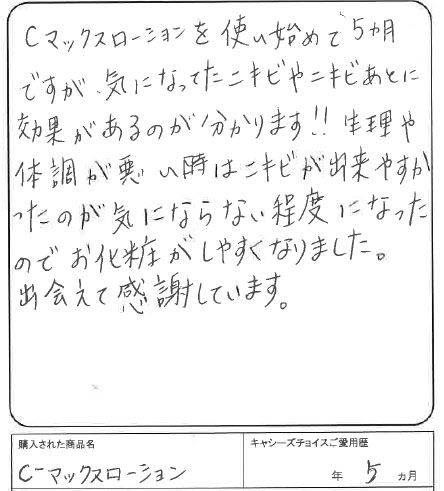 Cマックスローションを使い始めて5カ月
ですが、気になってたニキビやニキビあとに
効果があるのが分かります!! 生理や
体調が悪い時はニキビが出来やすか
ったのが気にならない程度になった
のでお化粧がしやすくなりました。
出会えて感謝しています。
購入された商品名
C-マックスローション
キャシーズチョイスご愛用歴
年 5 ヵ月